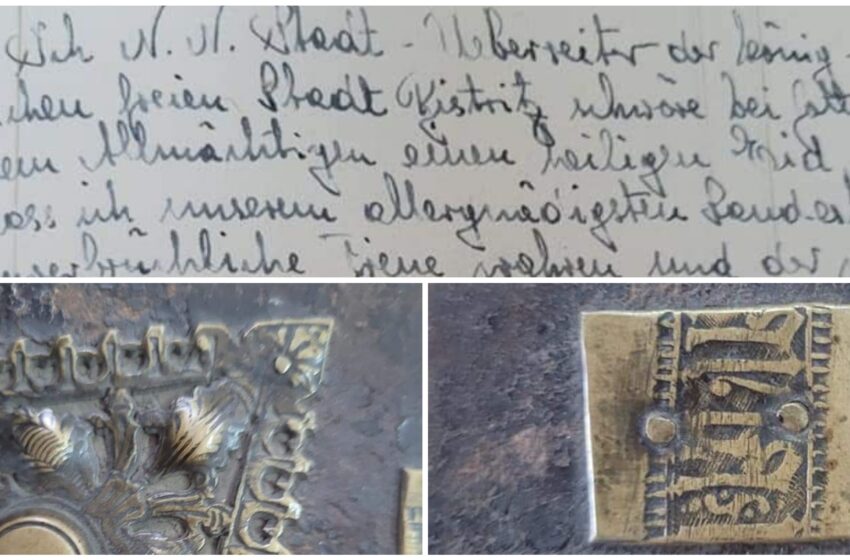 Ich N. N. Stadt-Überreiter der könig-
chen freien Stadt Bistritz schwöre bei
em Allmächtigen einen heiligen Eid,
ass ich unserem allergnädigsten Landesh
unverbrüchliche Treue wahren und der